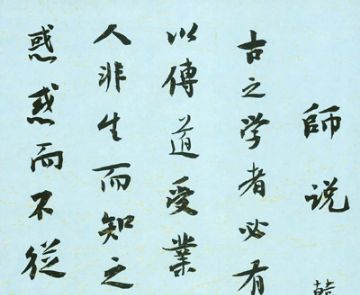 師说
古之学者必有
以傳道受業
人非生而知之
惑惑而不従